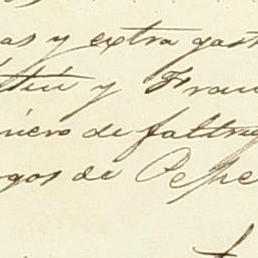 as y extra gast
y Fran
nero de faltr
gos de Pepe